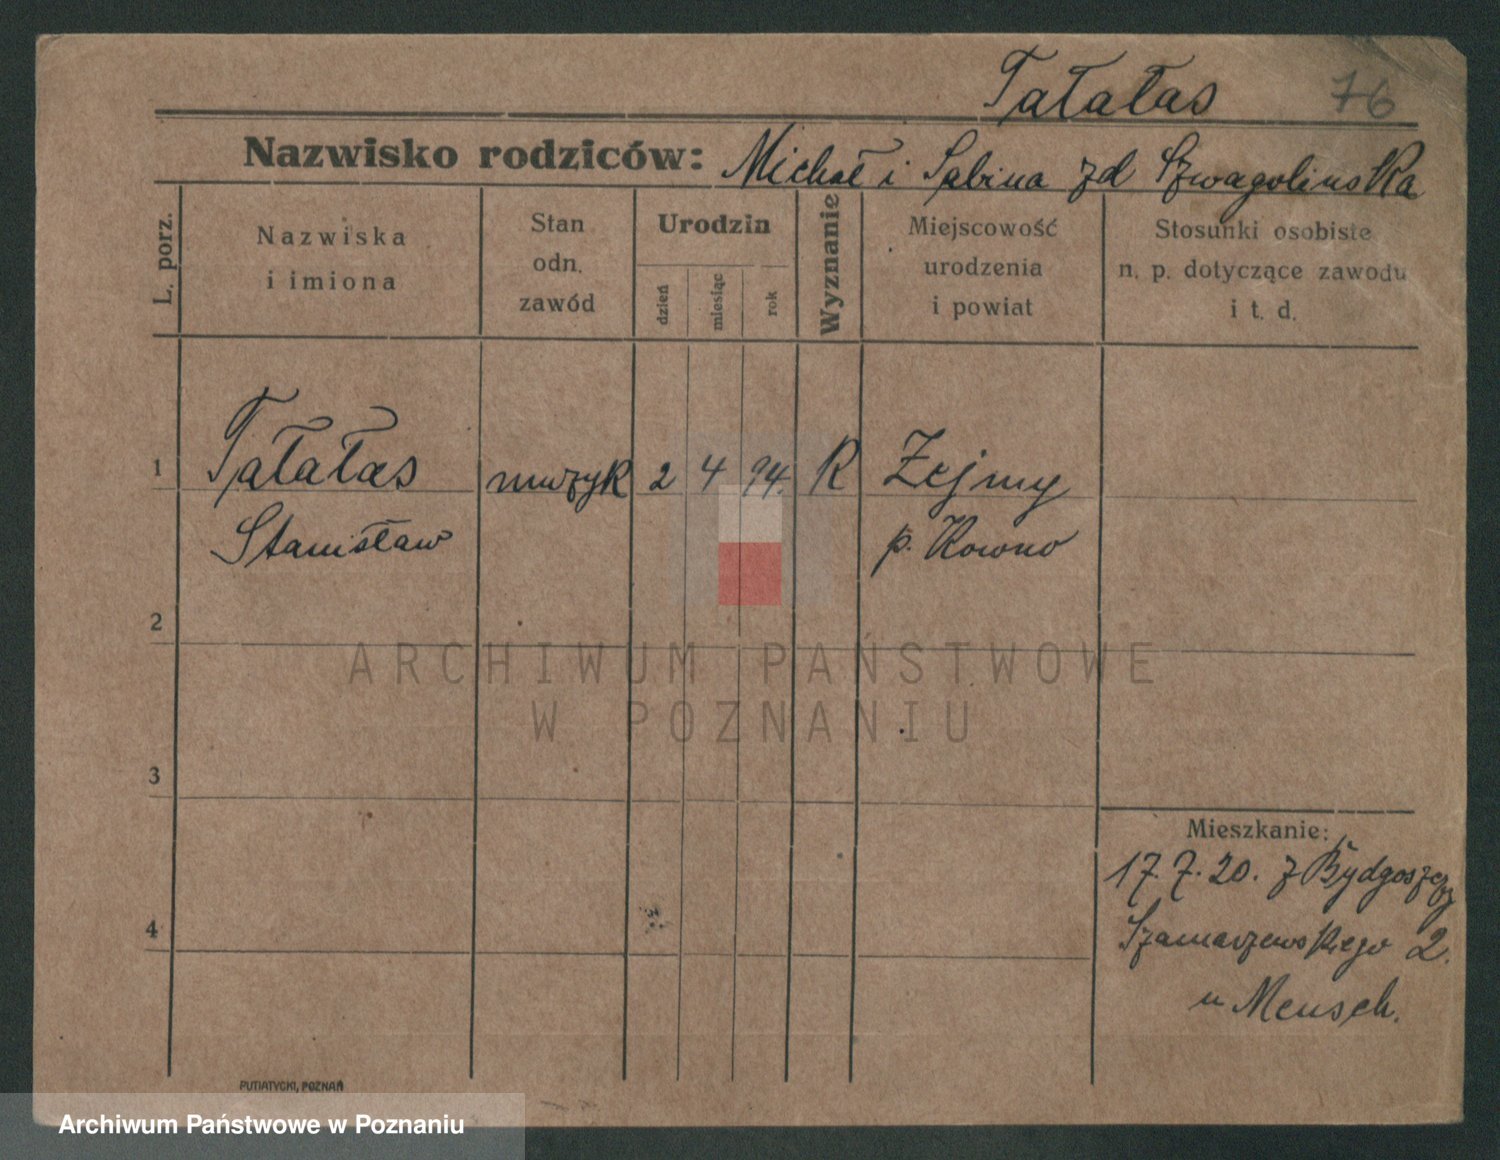 Tałałas 76
Nazwisko rodziców: Michał i Sabina zd Szwagolinska
L. porz.
Nazwiska
i imiona
Stan
odn.
zawód
Urodzin
dzień
miesiąc
rok
Wyznanie
Miejscowość
urodzenia
i powiat
Stosunki osobiste
n. p. dotyczące zawodu
i t. d.
1 Tałałas muzyk 2 4 94. R Zejmy
Stanisław p. Kowno
2
ARCHIWUM PAŃSTWOWE
W POZNANIU
3
Mieszkanie:
17.7.20. z Bydgoszczy
Szamarzewskiego 2.
u Mensch.
4
PUTIATYCKI, POZNAŃ
Archiwum Państwowe w Poznaniu